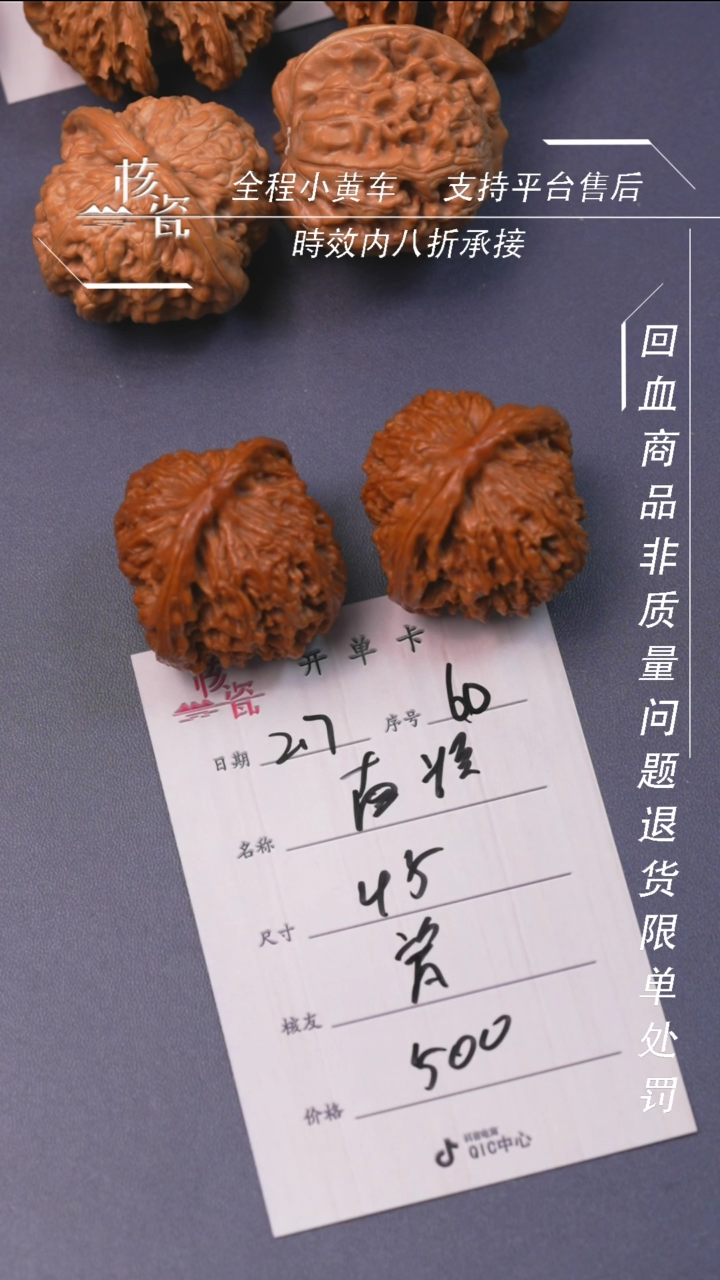 核瓷
全程小黄车 支持平台售后
時效内八折承接
回血商品非质量问题退货限单处罚
开单卡
核瓷
日期 2.7 序号 60
名称 南将
尺寸 45
核友
价格 500
抖音电商
QIC中心